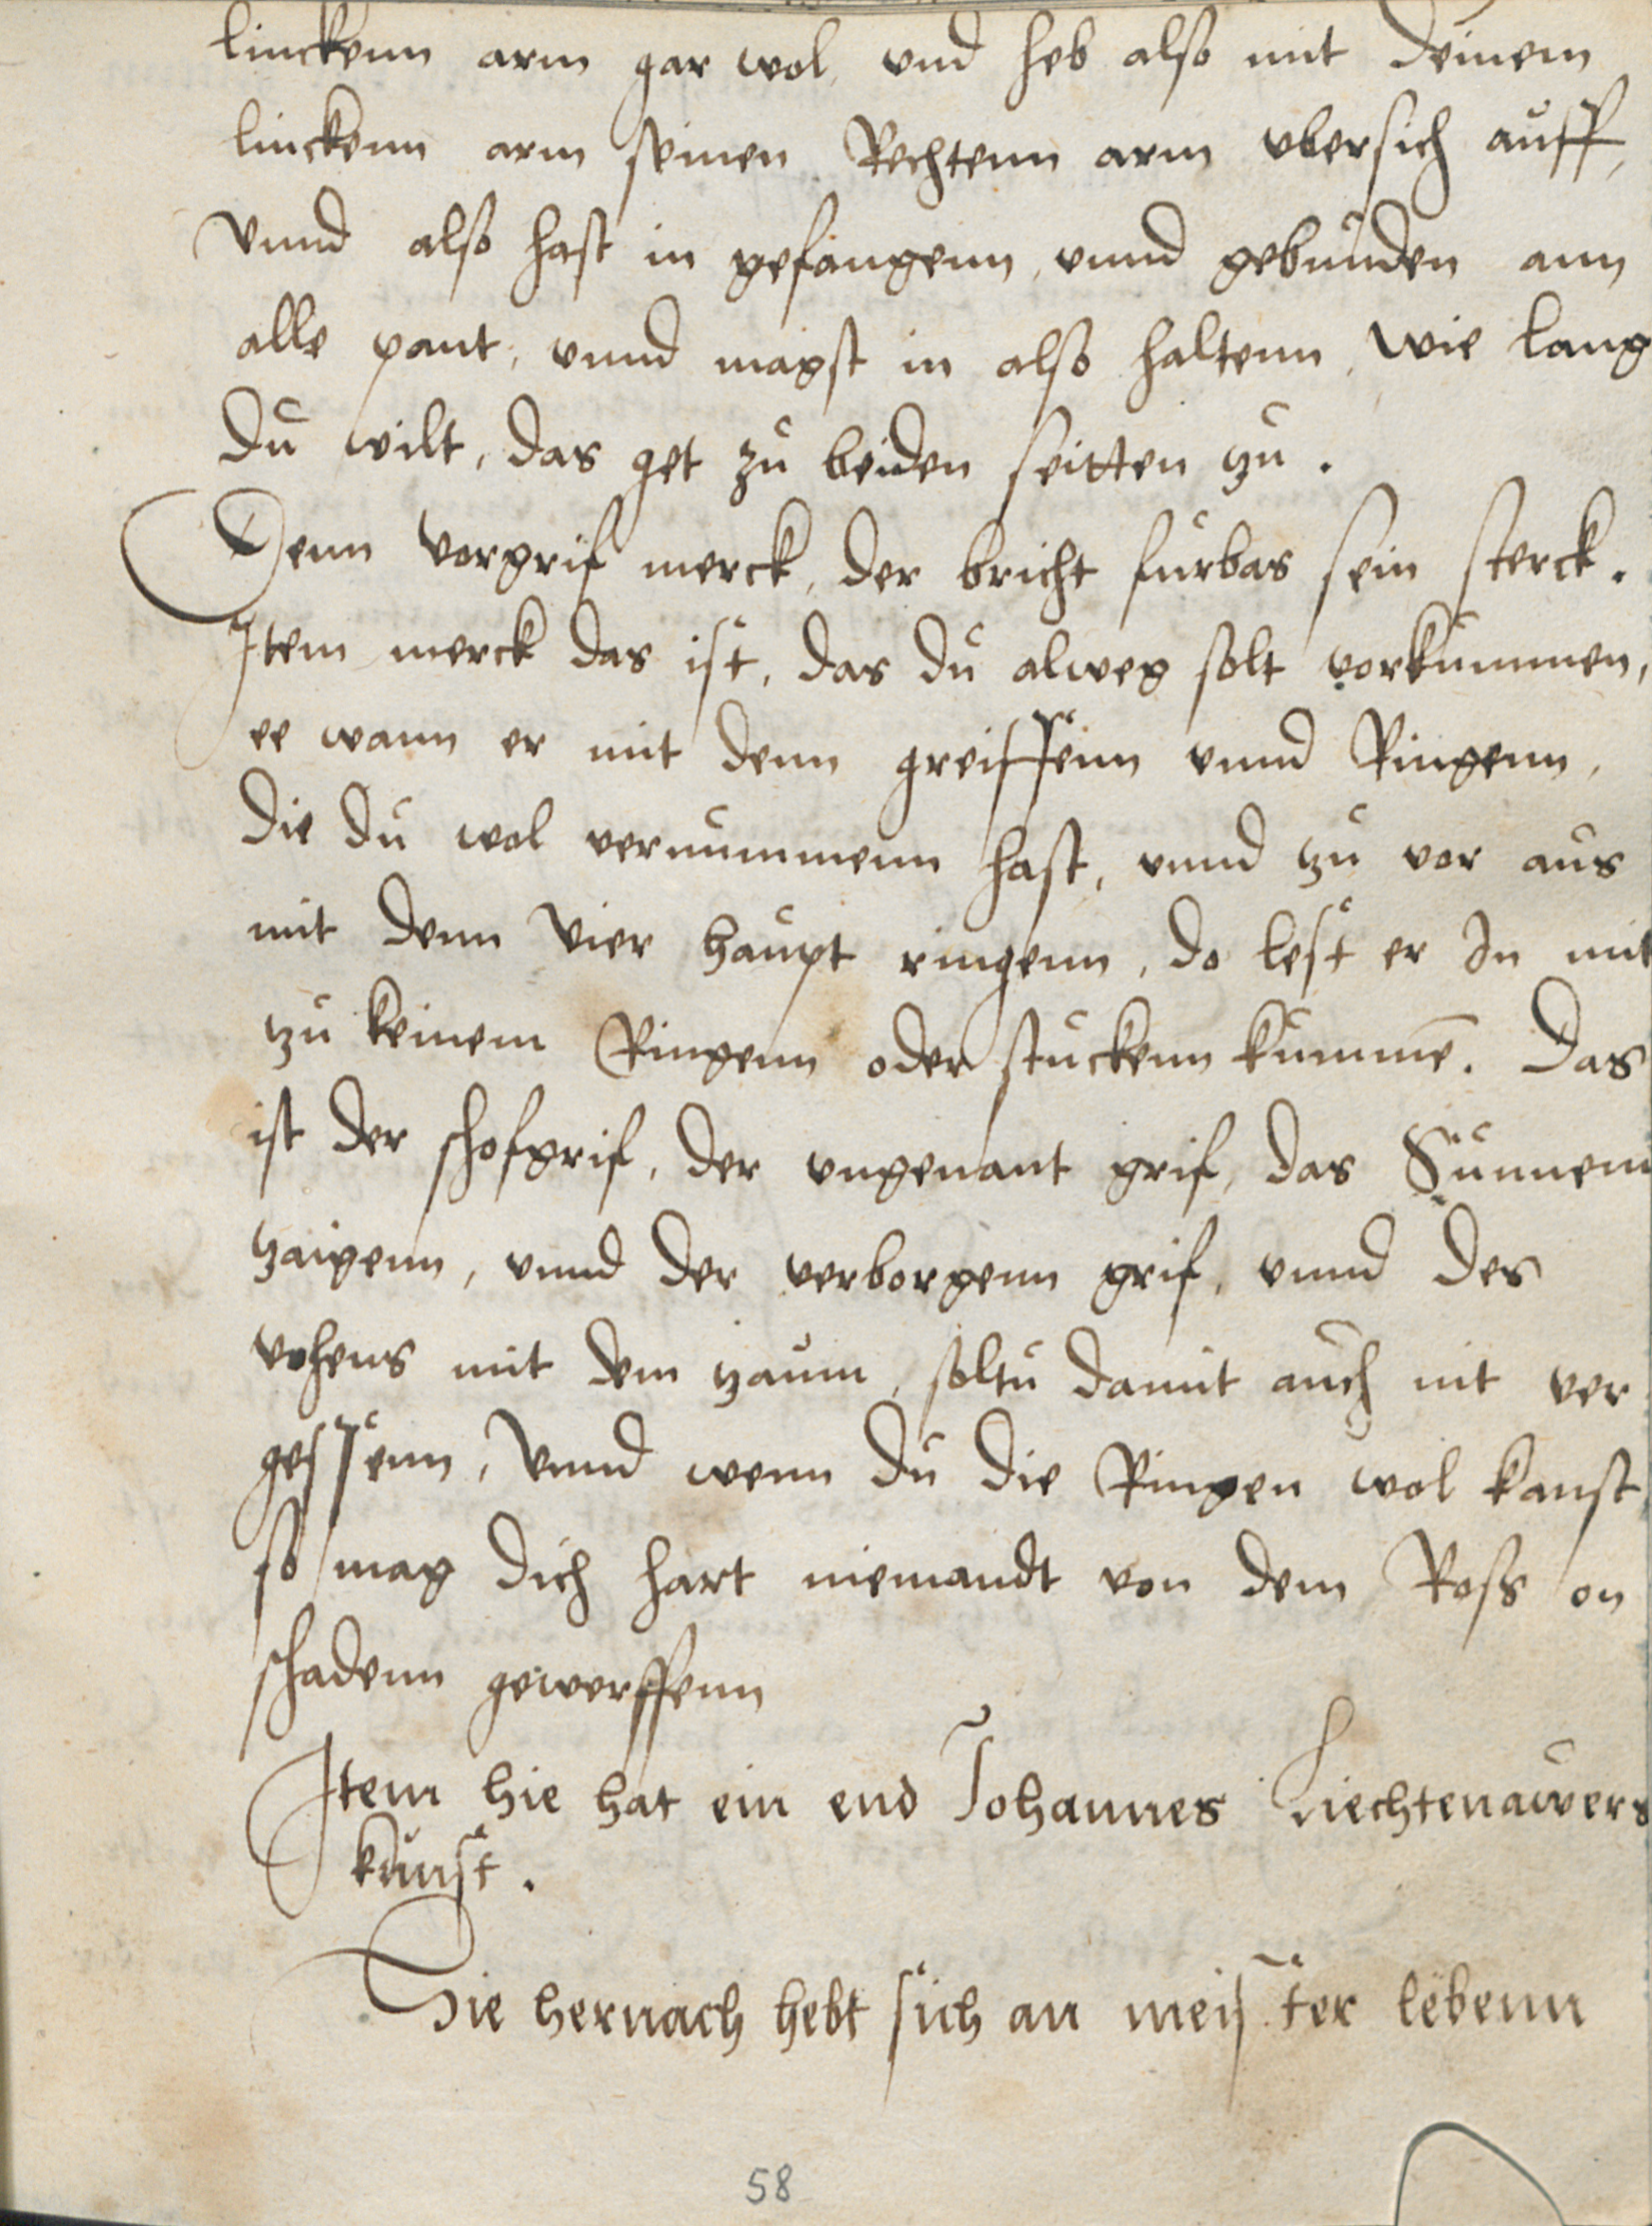 linckenn arm gar wol, vnd heb also mit deinem
linckenn arm seinen Rechtenn arm vbersich auff,
Vnnd also hast in gefangenn, vnnd gebunden ann
alle pant, vnnd magst in also haltenn, wie lang
du wilt, das get zu beiden seitten zu.
Denn vorgrif merck, der bricht furbas sein sterck.
Item merck das ist, das du alweg solt vorkummen,
ee wann er mit denn greiffenn vnnd Ringenn,
die du wol vernummenn hast, vnnd zu vor aus
mit denn vier haupt ringenn, do lest er In mit
zu keinem Ringenn oder stuckenn kummē. Das
ist der schofgrif, der vngenant grif, das Sunnenn
zaigenn, vnnd der verborgenn grif, vnnd des
vohens mit dem zaum, soltu damit auch nit ver
gessenn, Vnnd wenn du die Ringen wol kanst,
so mag dich hart niemandt von dem Ross on
schadenn gewerffenn
Item hie hat ein end Johannes Liechtenawers
kunst.
Hie hernach hebt sich an meister lebenn
58